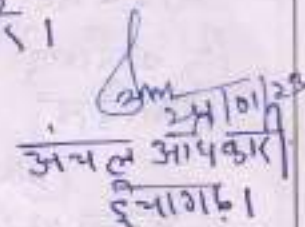 २।
24/01/23
अंचल अधिकारी
ईचागढ़।